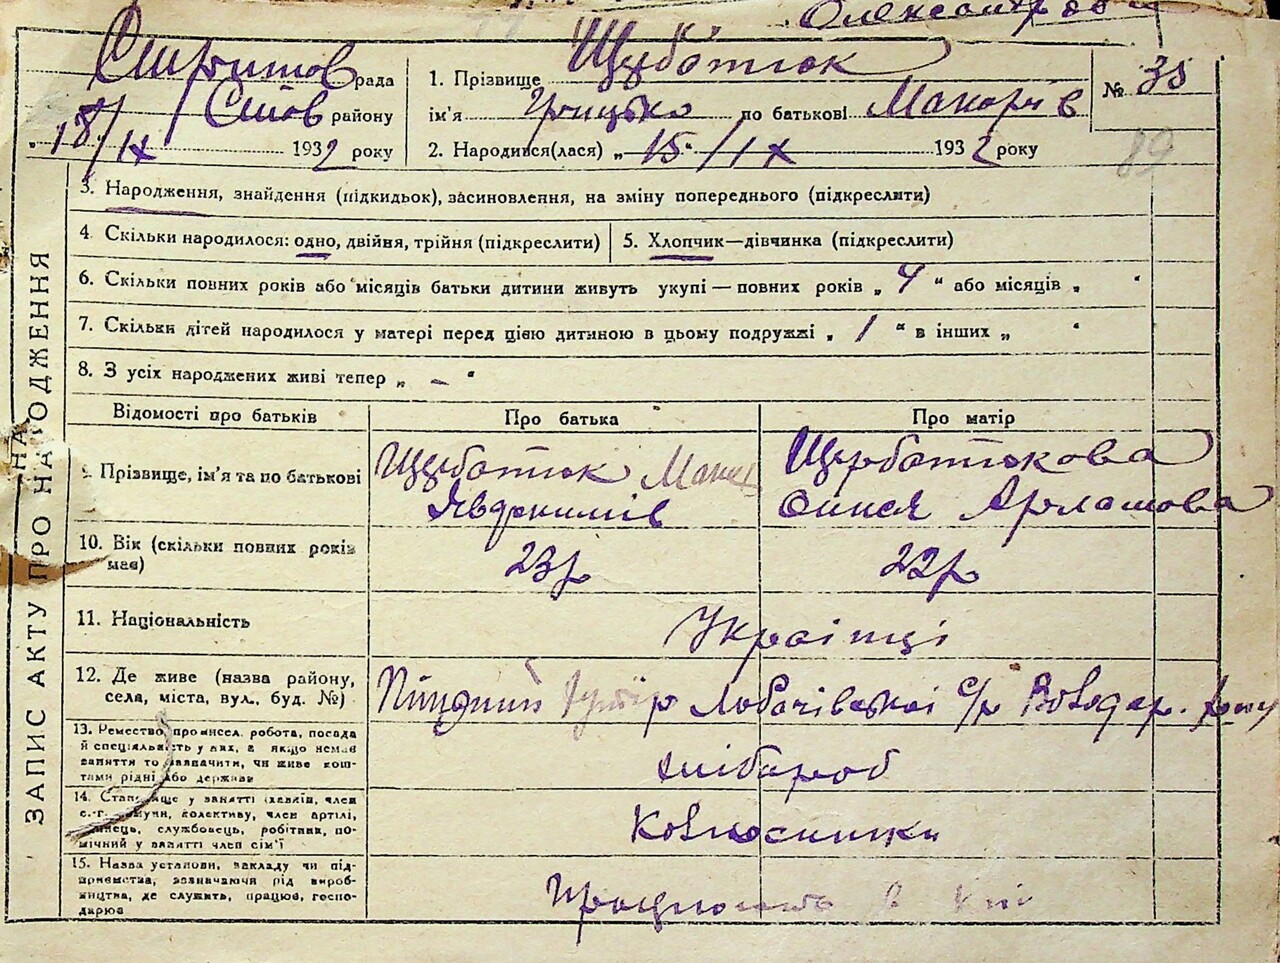 Олександрові
рада
району
„18/IX 1932 року
1. Прізвище Щуботюк
ім'я Грицько по батькові Макарів
2. Народився(лася) „15"/IX 1932 року
№ 35
89
3. Народження, знайдення (підкидьок), засиновлення, на зміну попереднього (підкреслити)
4. Скільки народилося: одно, двійня, трійня (підкреслити)
5. Хлопчик—дівчинка (підкреслити)
6. Скільки повних років або місяців батьки дитини живуть укупі — повних років „ 4 " або місяців „ "
7. Скільки дітей народилося у матері перед цією дитиною в цьому подружжі „ 1 " в інших „ "
8. З усіх народжених живі тепер „ – "
ЗАПИС АКТУ ПРО НАРОДЖЕННЯ
НА
Відомості про батьків
Про батька
Про матір
9. Прізвище, ім'я та по батькові
Щуботюк
Явдокимів
Щуботюкова
10. Вік (скільки повних років має)
23р
22р
11. Національність
Українці
12. Де живе (назва району,
села, міста, вул., буд. №)
хутір Лобачівської с/р Володар. р-ну
13. Ремество, промисел, робота, посада
й спеціяльність у них, а якщо немає
заняття то зазначити, чи живе кош-
тами рідні або держави
хлібороб
14. Становище у занятті (хазяїн, член
с.-г. комуни, колективу, член артілі,
службовець, робітник, по-
мічний у занятті член сім'ї
Колгоспники
15. Назва установи, закладу чи під-
приємства, зазначаючи рід вироб-
ництва, де служить, працює, госпо-
дарює
Працюють в